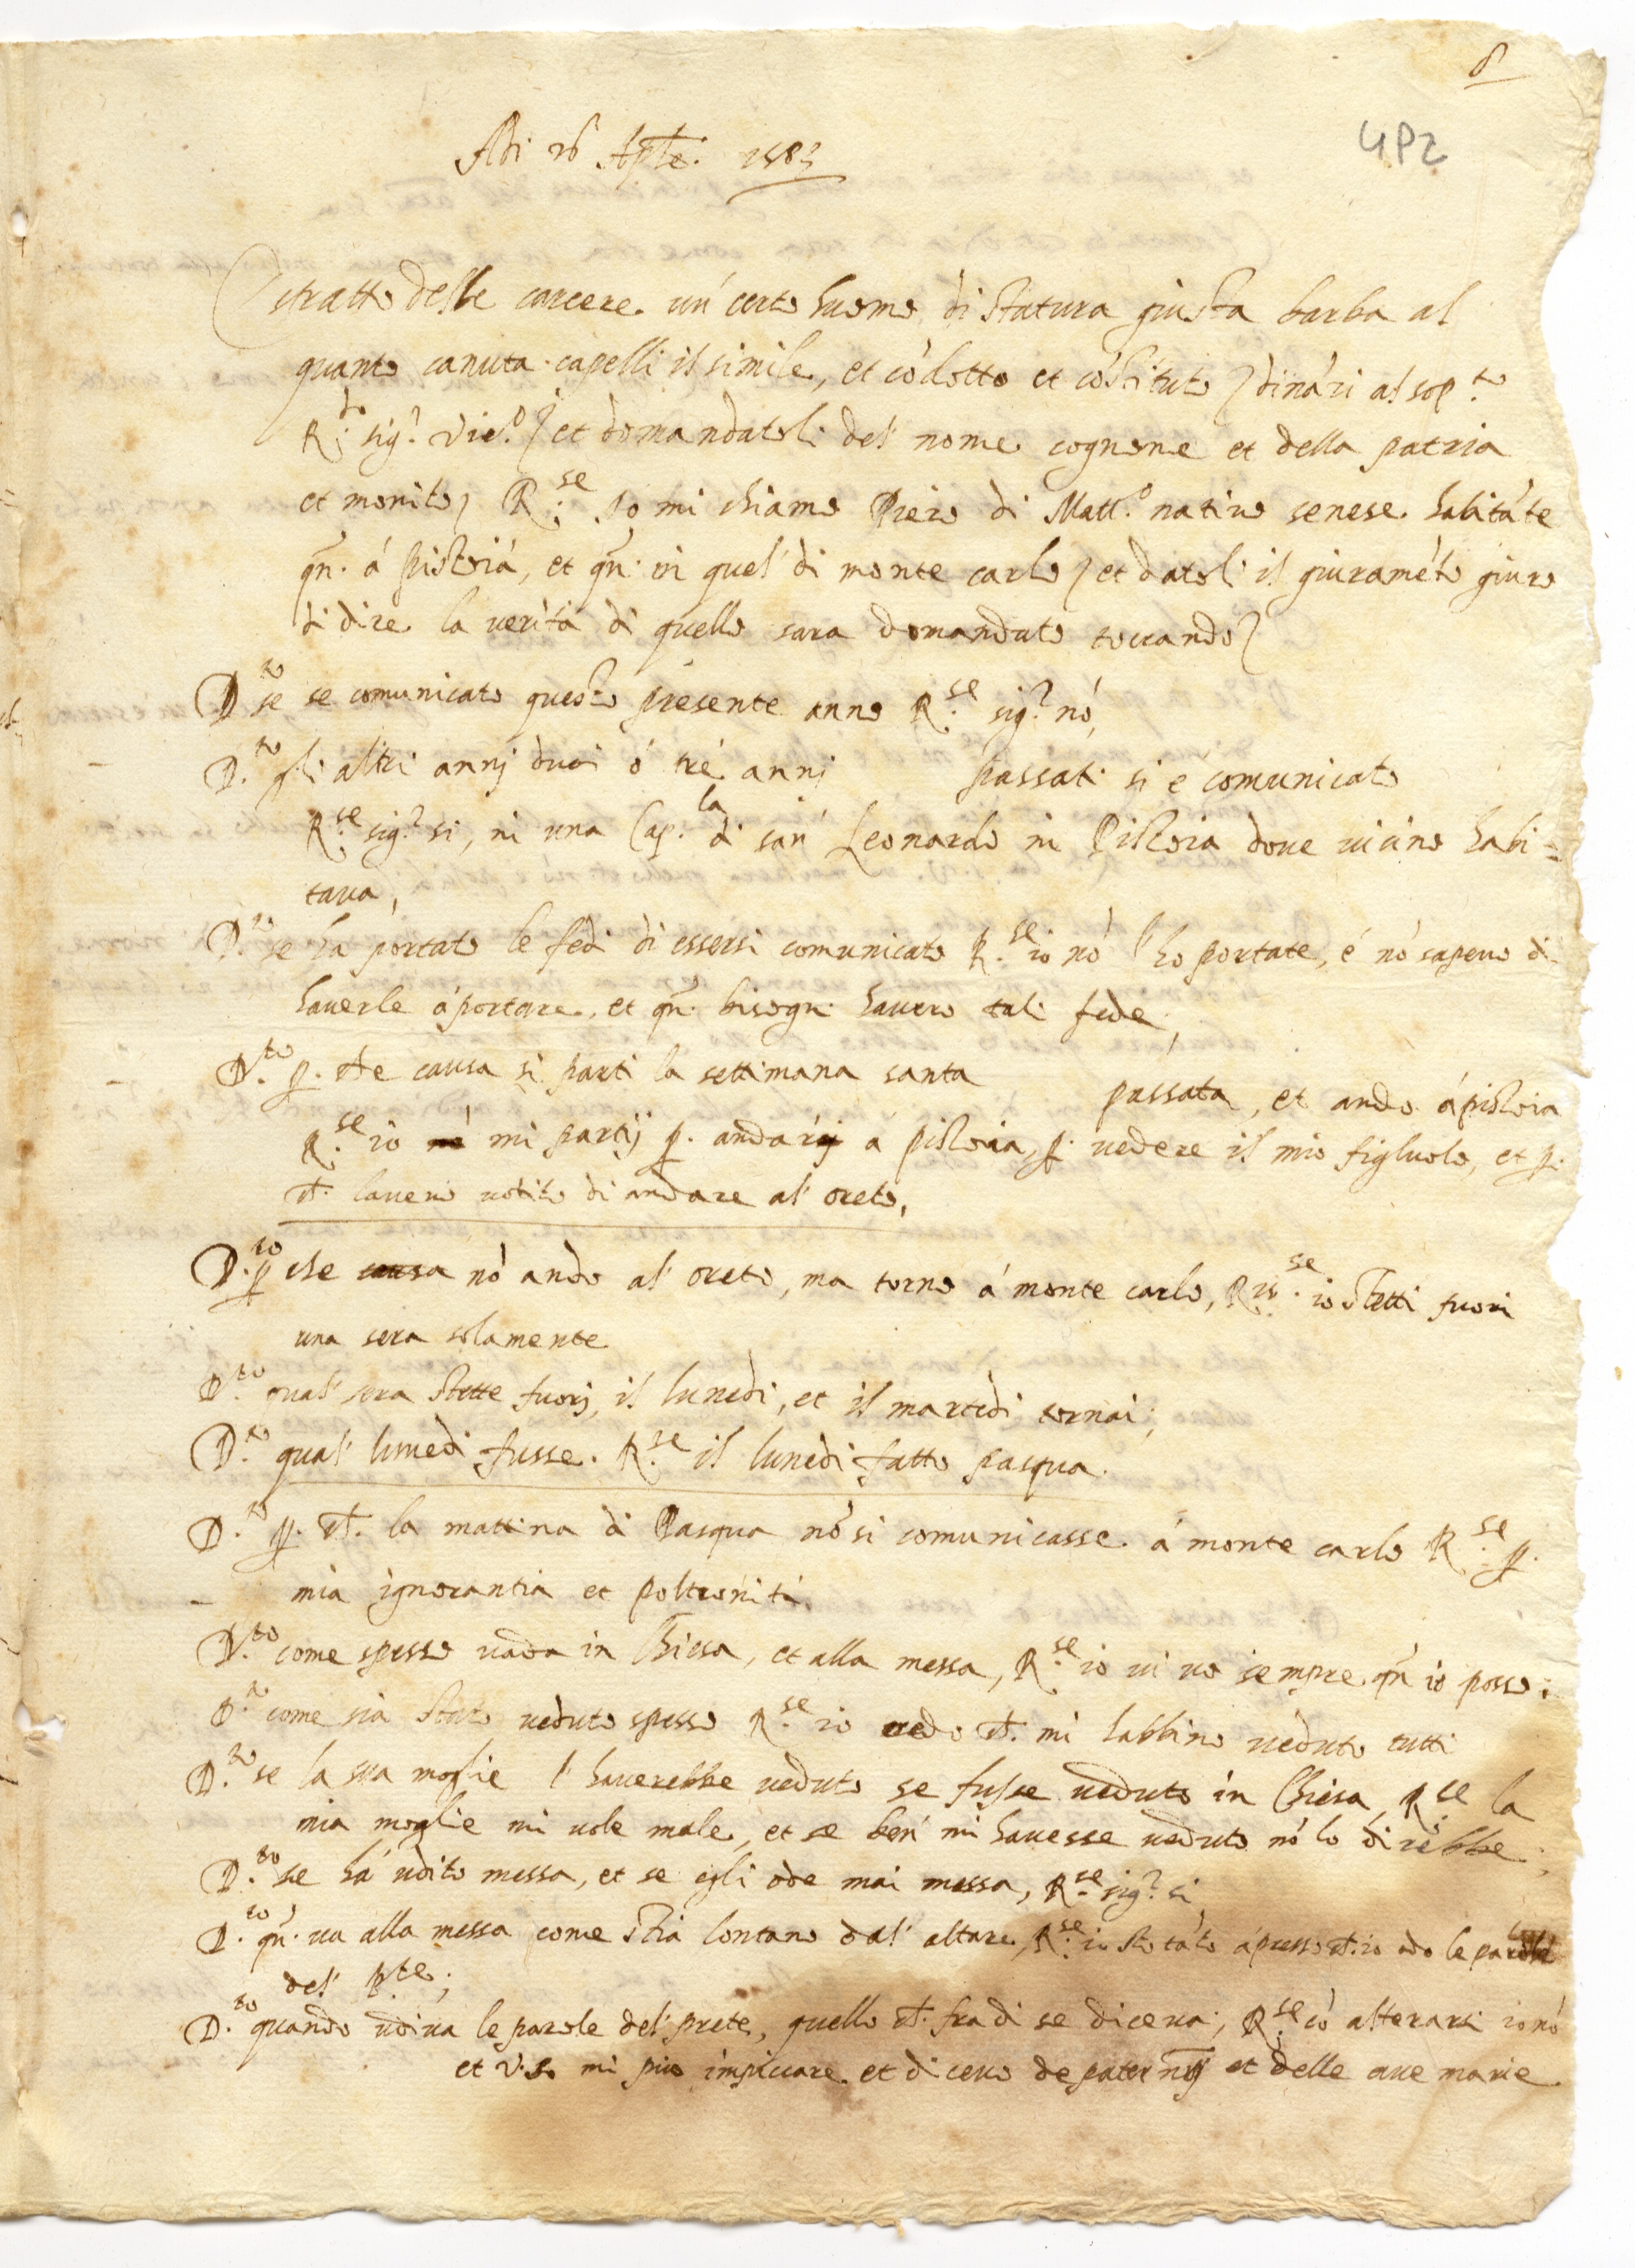 8
4P2
Adi 26 Aple. 1583
Estratto delle carcere un' certo huomo di statura giusta barba al
quanto canuta capelli il simile, et co'dotto et co'stituto dina'zi al sop.to
R.do sig.r Vic.o et domandatoli del' nome cognome et della patria
et monito, R.se Io mi chiamo Piero di Matt.o nativo senese habita'te
qn. á pistoia, et qn. in quel' di monte carlo et datoli il giurame'to giuro
di dire la verità di quello sara domandato toccando
D.to se se comunicato questo presente anno R.se sig.r nó,
D.to gli altri annj duoi ó tré annj passati si é comunicato
R.se sig.r si, in una Cap.la di san' Leonardo in Pistoia dove vicino habi=
tava,
D.to se há portato le fedi di essersi comunicato R.se io nó l'ho portate, é nó sapevo di
haverle á portare, et qn. bisogni havere tali fede,
D.to p. che causa si parti la settimana santa passata, et ando á pistoia
R.se io mi partij p. andar á pistoia, p. vedere il mio figluolo, et p.
ch. havevo votito di andare al' oreto,
D.to p che causa nó ando al' oreto, ma torno á monte carlo, R.se io stetti fuori
una sera solamente
D.to qual' sera stette fuorj, il lunedi, et il martedi tornai;
D.to qual' lunedi fusse. R.se il lunedi fatto pasqua.
D.to p. ch. la mattina di Pasqua nó si comunicasse á monte carlo R.se p.
mia ignorantia et poltronità
D.to come spesso vada in Chiesa, et alla messa, R.se io vi vo sempre qn io posso;
D.to come sia stato veduto spesso R.se io credo ch. mi habbino veduto tutti
D.to se la sua moglie l'haverebbe veduto se fusse veduto in Chiesa, R.se la
mia moglie mi vole male, et se ben' mi havesse veduto nó lo direbbe;
D.to se há udito messa, et se egli ode mai messa, R.se sig.r si
D.to qn. va alla messa come stia lontano dal' altare, R.se io sto ta'to apresso ch. io odo le parole
del' P.te;
D.to quando udiva le parole del' prete, quello ch. fra di se diceva; R.se co' alterarsi io nó
et V.S. mi puo impiccare et dicevo de pater nrj et delle ave marie